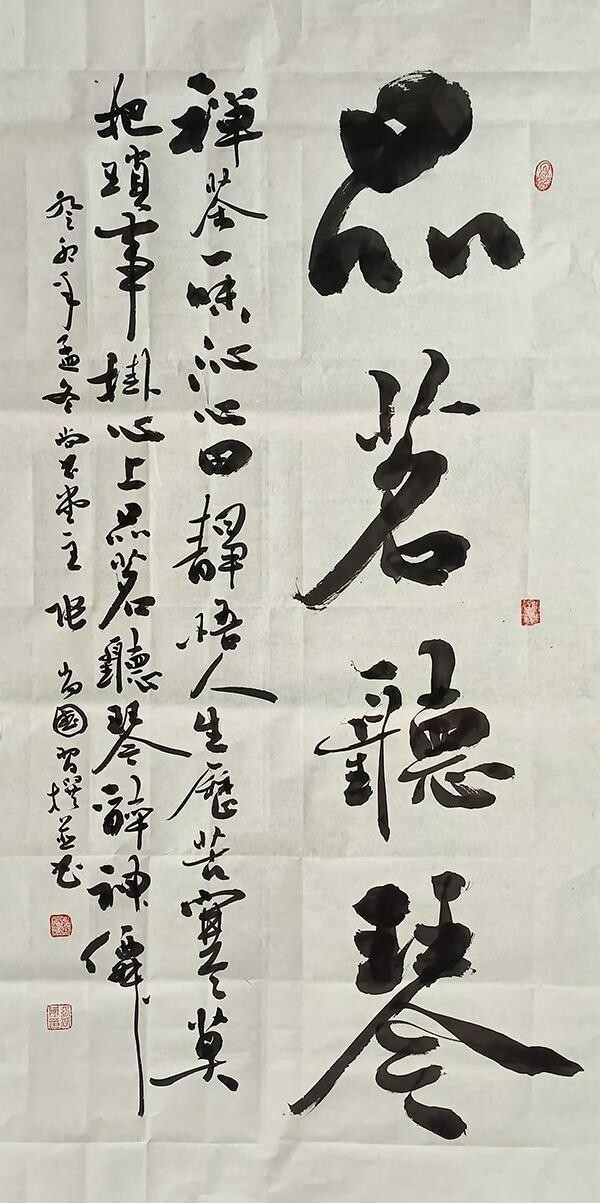 品茗聽琴
禪茶一味沁心田靜悟人生歷苦寒莫
把瑣事掛心上品茗聽琴醉神僊
癸卯年孟冬尚堂主張尚國習撰並書